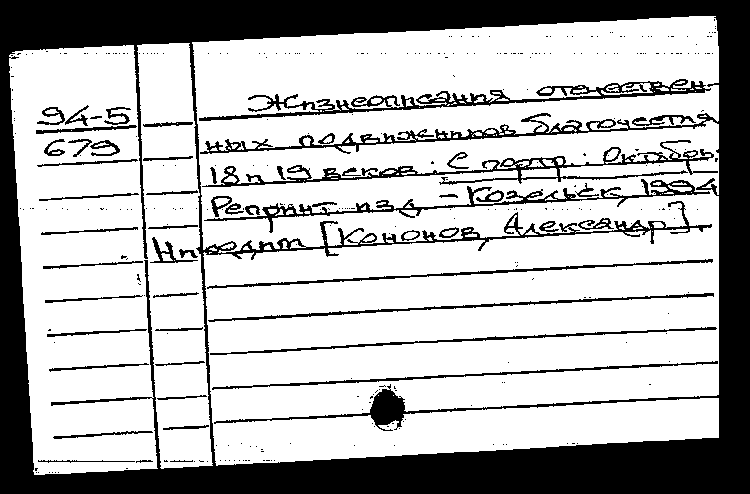 94-5
679
Жизнеописания отечествен-
ных подвижников благочестия
18 и 19 веков : С портр. : Октябрь.
Репринт изд. – Козельск, 1994
Никодим [Кононов, Александр].